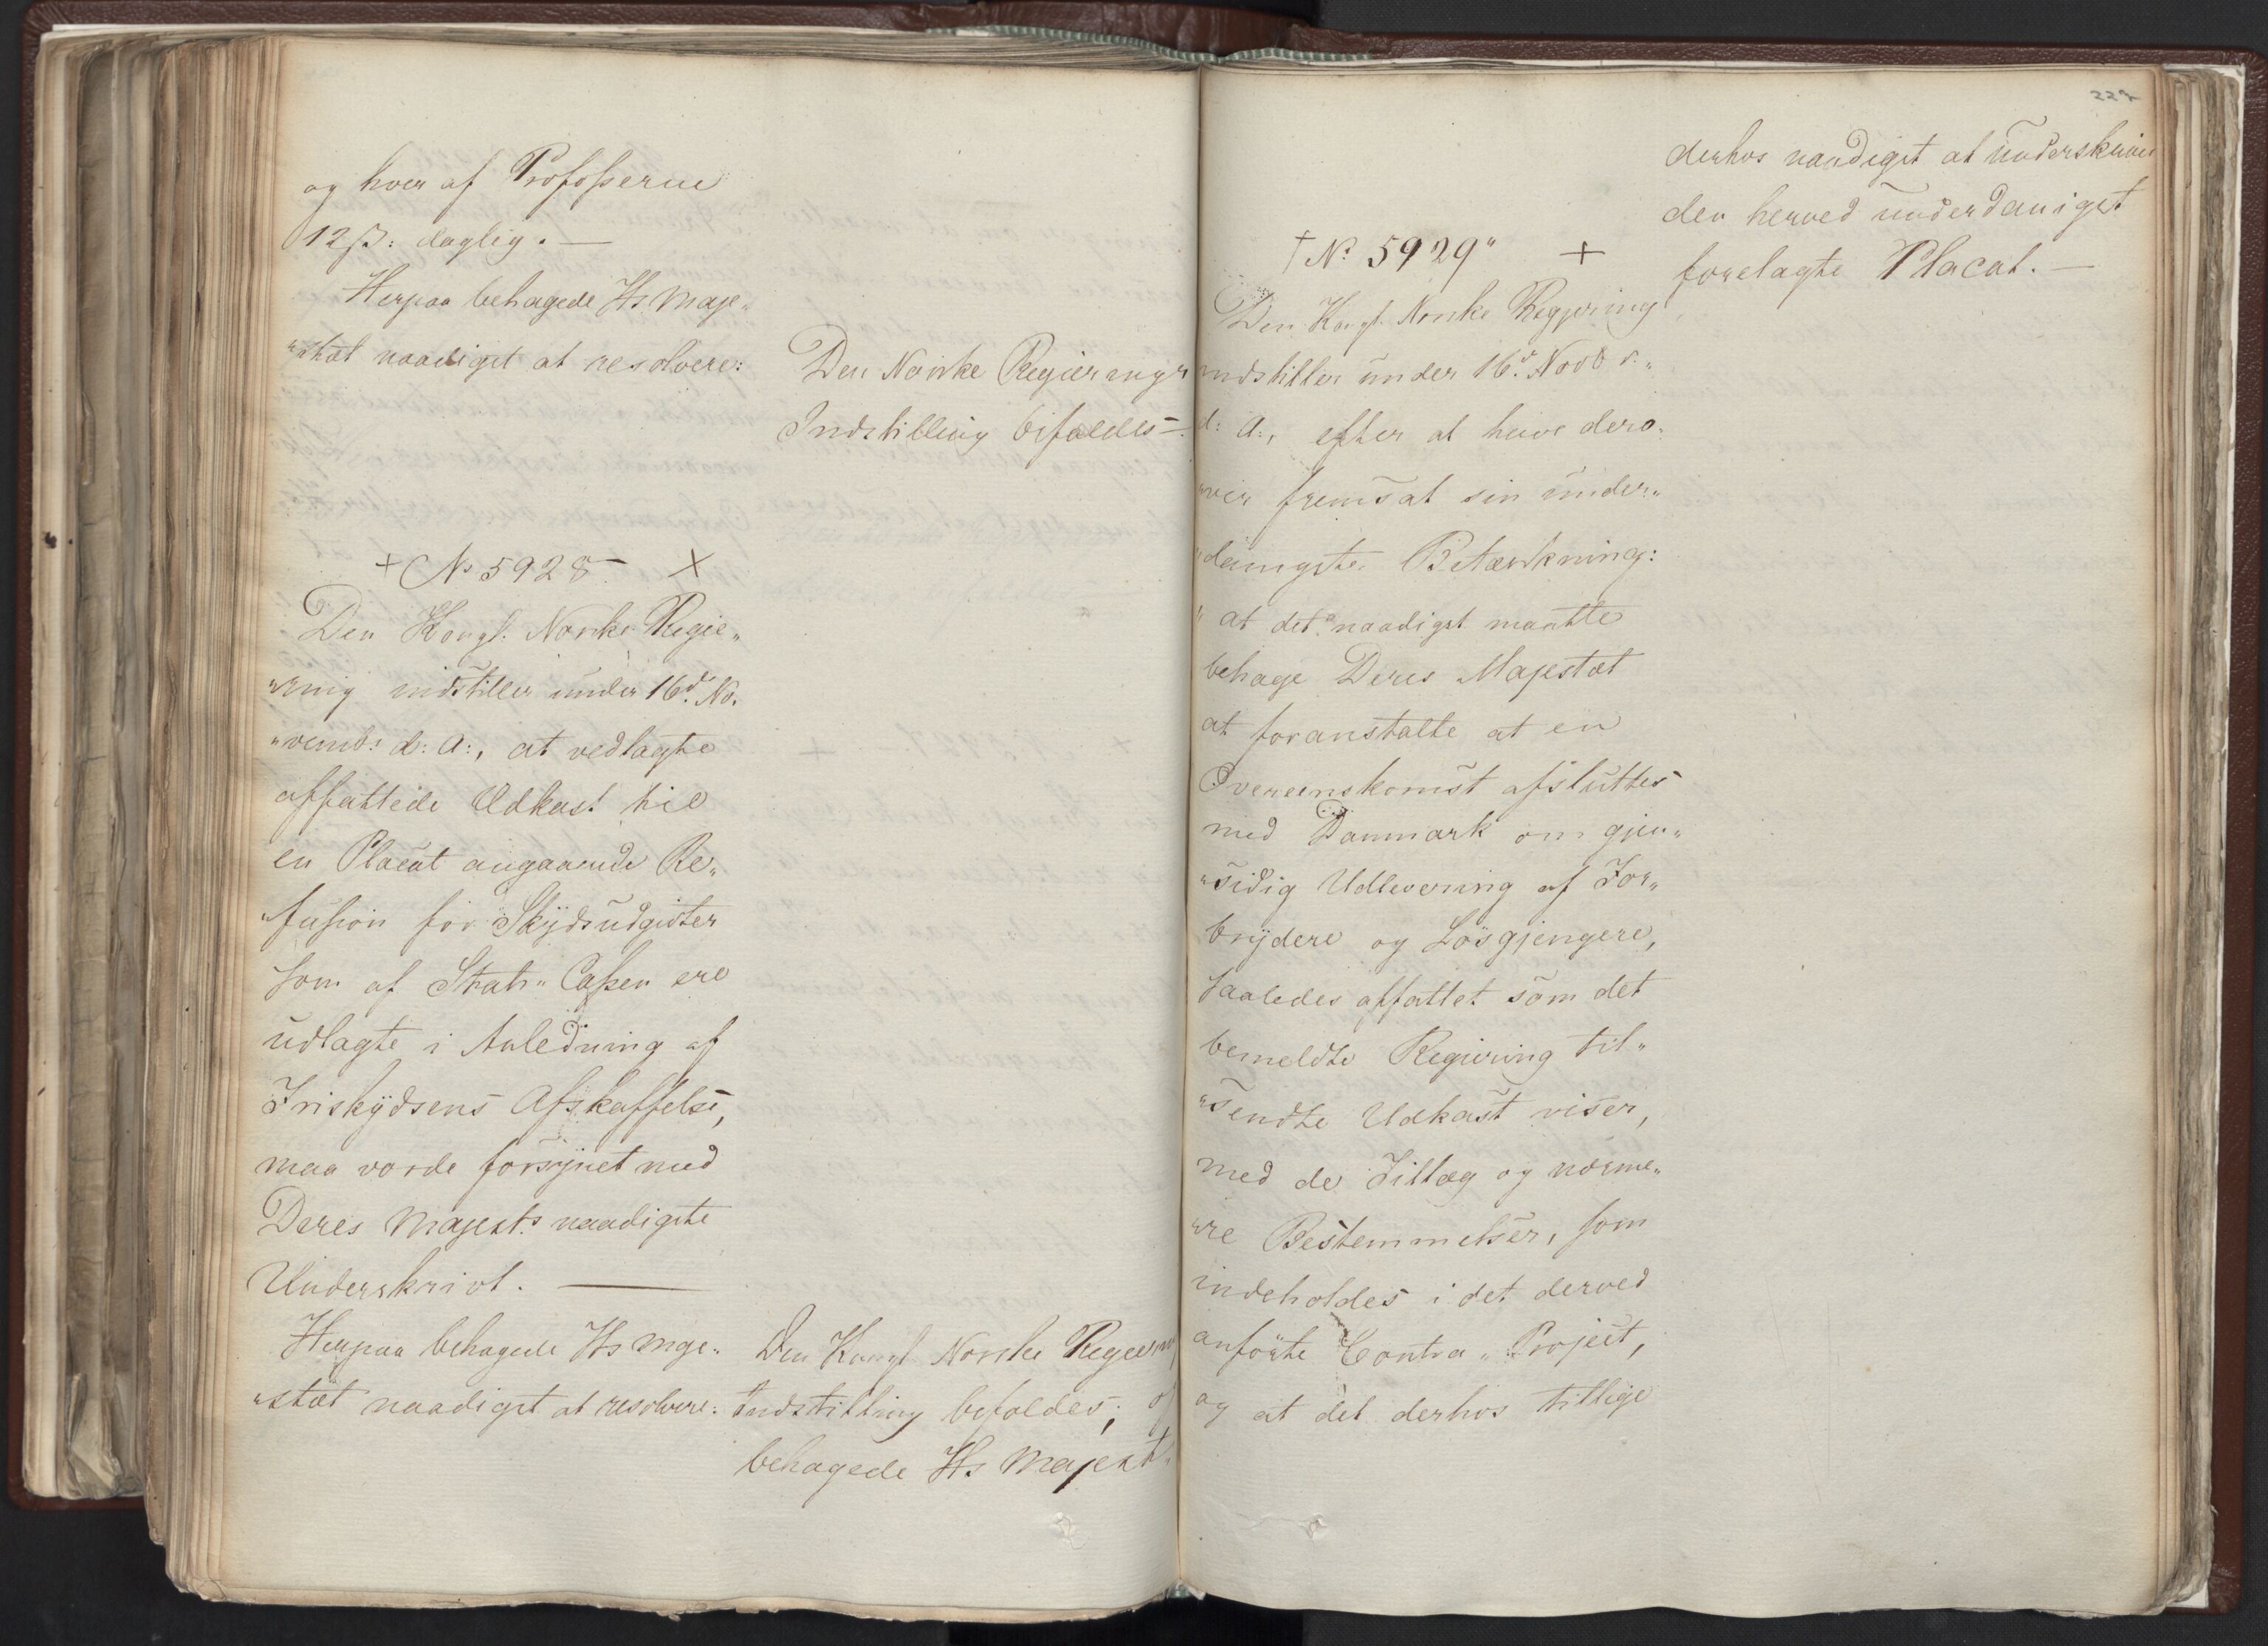 og hver af Profosserne
12 ß: daglig. —
Herpaa behagede Hs. Maje„
„stæt naadigst at resolvere:
Den Norske Regierings
Indstilling bifaldes —.
+ No 5928 X
Den Kongl. Norske Regie„
„ring indstiller under 16d. No„
„vemb: d: A:, at vedlagte
affattede Udkast til
en Placat angaaende Re„
„fusion for Skydsudgivter
som af Stats„Cassen ere
udlagte i Anledning af
Friskydsens Afskaffelse,
maa vorde forsynet med
Deres Majests naadigste
Underskrivt. —
Herpaa behagede Hs Maje„
„stæt naadigst at resolvere:
Den Kongl Norske Regierings
Indstilling bifaldes; og
behagede Hs Majestt.
227
derhos naadigst at underskrive
den herved underdanigst
forelagte Placat. —
† No 5929" +
Den Kongl. Norske Regjering
indstiller under 16d. Novbr.
d: A:, efter at have dero„
„ver fremsat sin under„
„danigste Betænkning:
" at det naadigst maatte
behage Deres Majestæt
at foranstalte at en
Overeenskomst afsluttes
med Danmark om gjen„
„sidig Udlevering af For„
brydere og Lösgjengere,
saaledes affattet som det
bemeldte Regiering til„
„sendte Udkast viser,
med de Tillæg og nærme„
„re Bestemmelser, som
indeholdes i det derved
anförte Contra„Project,
og at det derhos tillige